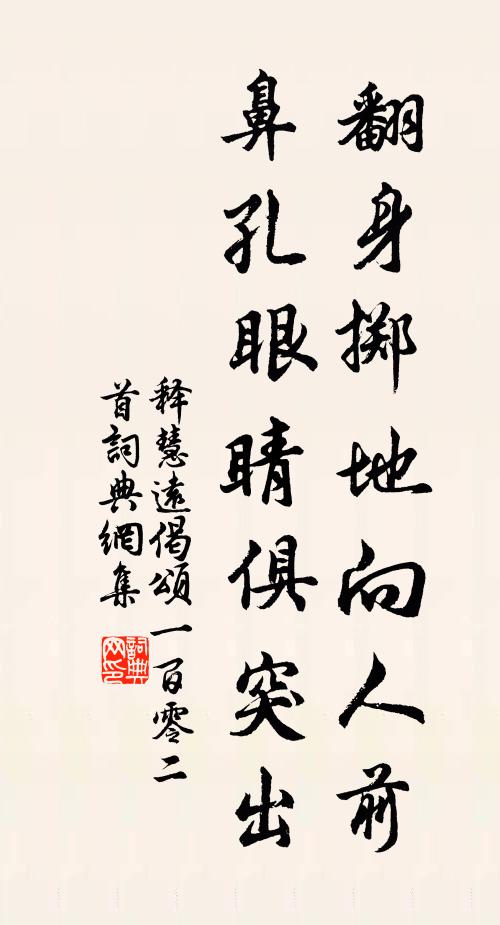 翻身掷地向人前
鼻孔眼睛俱突出
释慧遠偈頌一百零二
首詞典網集
詞典
网印